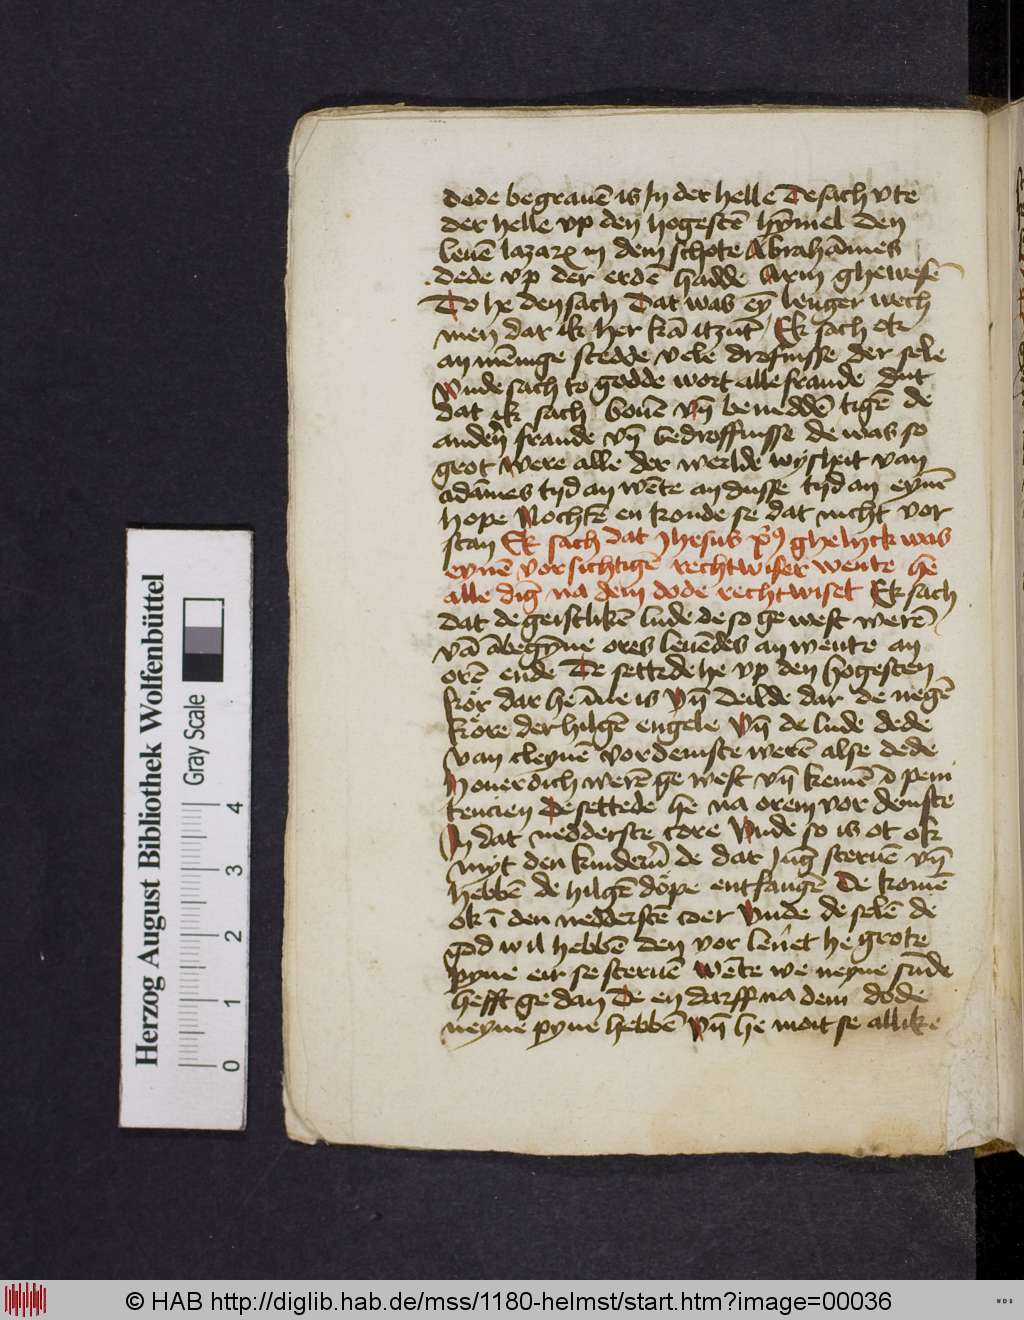 dede begrauē is Jn der helle De sach vte
der helle vp den hogestē hȳmel den
leuē lazarꝫ in dem schote Abrahāmes
dede vp der erdē hadde arm ghewesē
Do he den sach Dat was eȳ lenger wech
men dar ik her kā itzūt Ek sach ok
an mēnige stedde vele drofnisse der sele
Vnde sach to godde wort alle fraude Dut
dat ik sach bouē vn̄ beneddē tigē de
anderñ fraude vn̄ bedroffnisse de was so
grot were alle der werlde wysheit van
adāmes tyd an wēte an dusse tyd an eynē
hope Nochtē en konde se dat nicht vor
stan Ek sach dat Jhesus xp̄s ghelyck was
eynē vorsichtigē rechtwiser wente he
alle dīg na dem dode rechtwiset Ek sach
dat de geistlikē lude de so ge west werē
vā ābegȳne ores leuēdes an wente an
orē ende De settede he vp den hogesten
kör dar he īne is Vn̄ deilde dar de negē
köre der hilgē engele Vn̄ de lude dede
van cleynē vordemste werē alse dede
houerdich werē ge west vn̄ kemē to peni
tencien De settede he na orem vor demste
Jn dat nedderste core Vnde so is ot ok
myt den kinderñ de dar jūg steruē vn̄
hebbē de hilgē döpe entfangē De komē
ok ī den nedderstē coer Vnde de selē de
god wil hebbē den vor leūet he grote
pyne eir se steruē Wēte we neyne sūde
hefft ge dan De en darff na dem dode
neyne pyne hebbē Vn̄ he moit se allike
Herzog August Bibliothek Wolfenbüttel
Gray Scale
0 1 2 3 4
© HAB http://diglib.hab.de/mss/1180-helmst/start.htm?image=00036